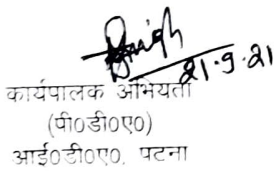 21.9.21
कार्यपालक अभियंता
(पी०डी०ए०)
आई०डी०ए०, पटना